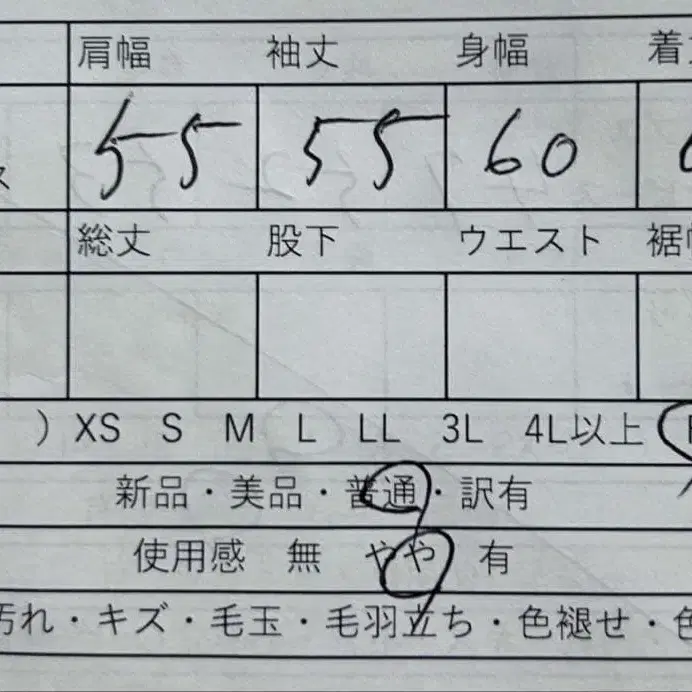 肩幅 袖丈 身幅 着
55 55 60
総丈 股下 ウエスト 裾
) XS S M L LL 3L 4L以上
新品・美品・普通・訳有
使用感 無 やや 有
汚れ・キズ・毛玉・毛羽立ち・色褪せ・色